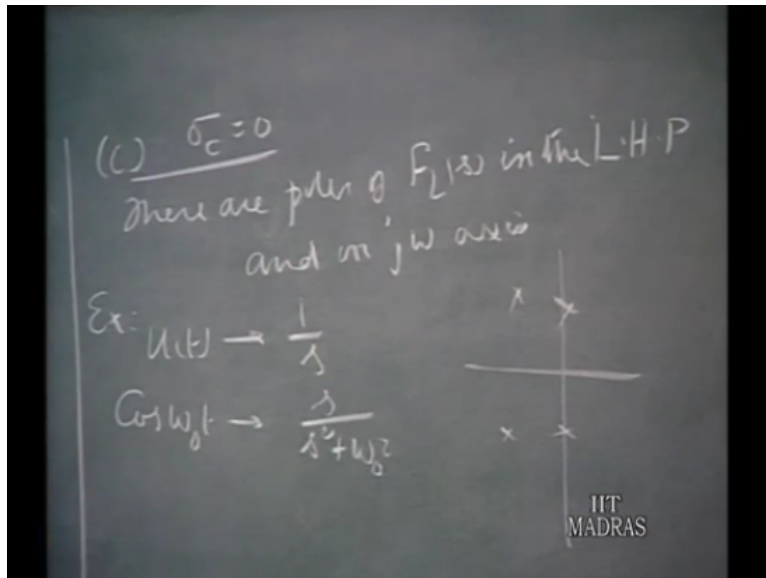 (C) σc = 0
There are poles of FL(s) in the L.H.P
and on jω axis
Ex: u(t) → 1/s
Cos ω0t → s/s²+ω0²
IIT
MADRAS